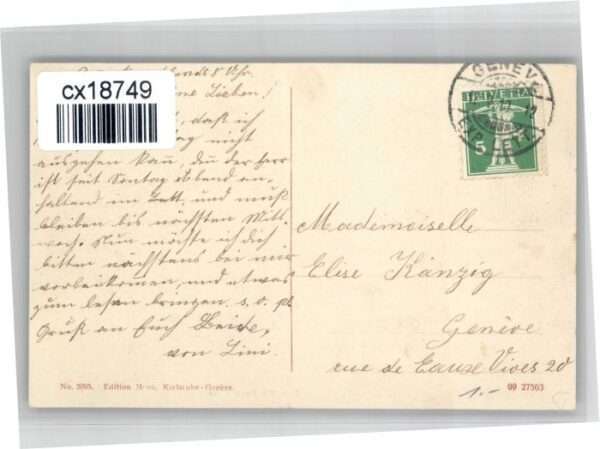 abends 8 Uhr.
meine Lieben!
cx18749
daß ich
nicht
ausgehen kann, den der Herr
ist seit Sontag Abend an-
haltend im Bett, und muß
bleiben bis nächsten Mitt-
woch. Nun möchte ich dich
bitten nächstens bei mir
vorbeikomen, und etwas
zum lesen bringen. s. v. pl
Gruß an Euch Beide,
von Lini.
GENÈVE
HELVETIA
5
Mademoiselle
Elise Känzig
Genève
rue de Eaux Vives 20
1.-
Edition Karlsruhe-Genève.
99 27563